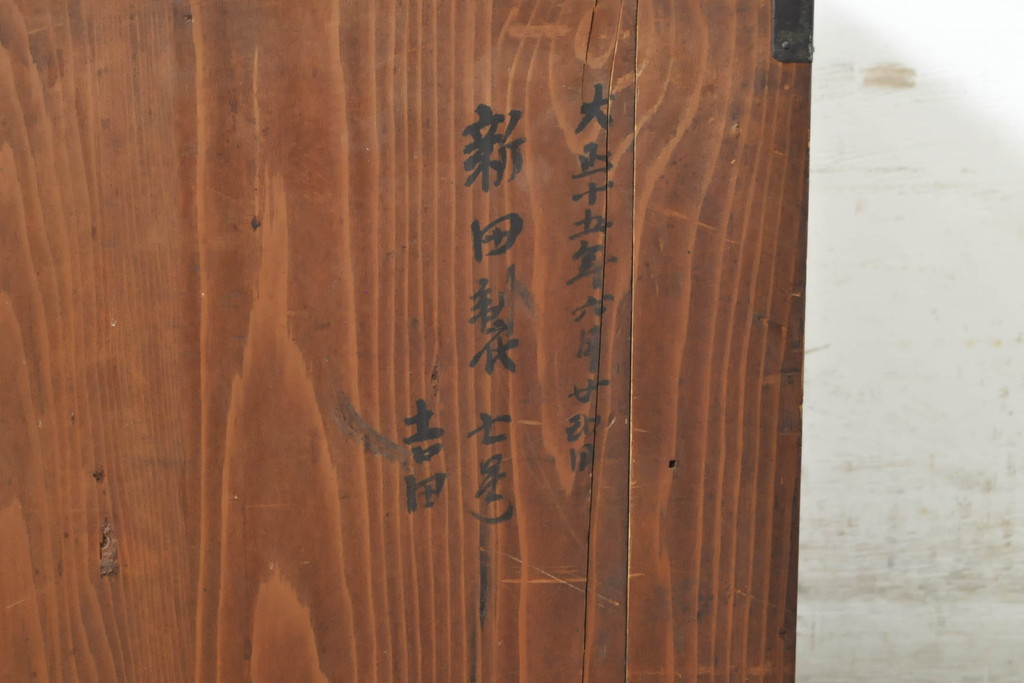 大正十五年六月廿四日
新田製七号
吉田